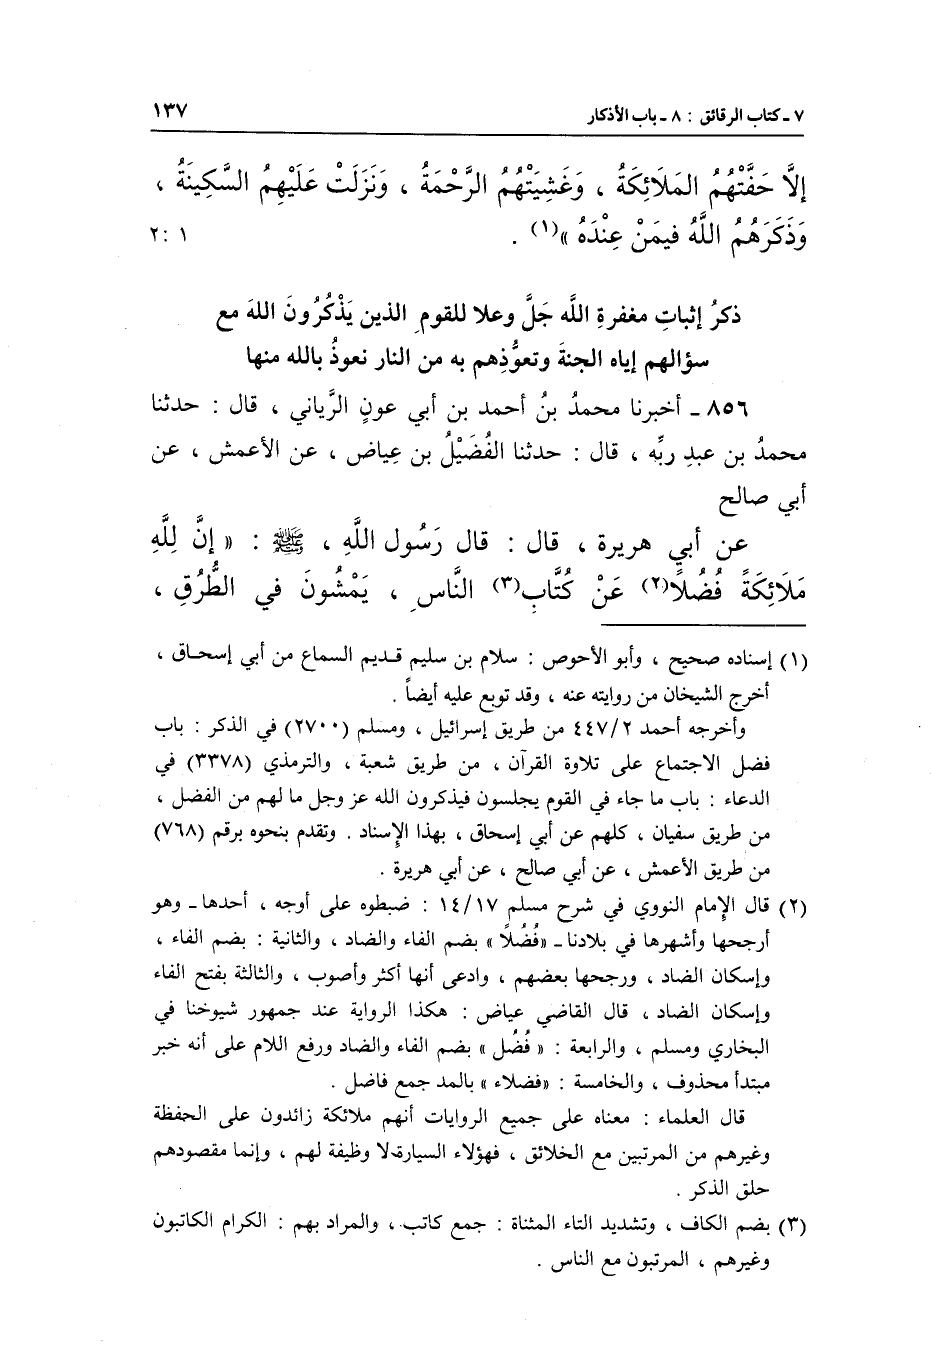 ٧ ـ كتاب الرقائق : ٨ ـ باب الأذكار ١٣٧
إلَّا حَفَّتْهُمُ المَلَائِكَةُ ، وَغَشِيَتْهُمُ الرَّحْمَةُ ، وَنَزَلَتْ عَلَيْهِمُ السَّكِينَةُ ،
وَذَكَرَهُمُ اللَّهُ فيمَنْ عِنْدَهُ »(١) . ١ :٢
ذكرُ إثباتِ مغفرةِ اللَّه جَلَّ وعلا للقومِ الذين يَذْكُرُونَ اللهَ مع
سؤالهم إياه الجنةَ وتعوُّذِهم به من النار نعوذُ بالله منها
٨٥٦ ـ أخبرنا محمدُ بنُ أحمد بن أبي عونٍ الرَّياني ، قال : حدثنا
محمدُ بن عبدِ ربِّه ، قال : حدثنا الفُضَيْلُ بن عِياض ، عن الأعمش ، عن
أبي صالح
عن أبي هريرة ، قال : قال رَسُول اللَّهِ ، ﷺ : « إنَّ لِلَّهِ
مَلَائِكَةً فُضُلاً(٢) عَنْ كُتَّابِ(٣) النَّاسِ ، يَمْشُونَ في الطُّرُقِ ،
(١) إسناده صحيح ، وأبو الأحوص : سلام بن سليم قديم السماع من أبي إسحاق ،
أخرج الشيخان من روايته عنه ، وقد توبع عليه أيضاً .
وأخرجه أحمد ٤٤٧/٢ من طريق إسرائيل ، ومسلم (٢٧٠٠) في الذكر : باب
فضل الاجتماع على تلاوة القرآن ، من طريق شعبة ، والترمذي (٣٣٧٨) في
الدعاء : باب ما جاء في القوم يجلسون فيذكرون الله عز وجل ما لهم من الفضل ،
من طريق سفيان ، كلهم عن أبي إسحاق ، بهذا الإسناد . وتقدم بنحوه برقم (٧٦٨)
من طريق الأعمش ، عن أبي صالح ، عن أبي هريرة .
(٢) قال الإمام النووي في شرح مسلم ١٤/١٧ : ضبطوه على أوجه ، أحدها ـ وهو
أرجحها وأشهرها في بلادنا ـ «فُضُلًا» بضم الفاء والضاد ، والثانية : بضم الفاء ،
وإسكان الضاد ، ورجحها بعضهم ، وادعى أنها أكثر وأصوب ، والثالثة بفتح الفاء
وإسكان الضاد ، قال القاضي عياض : هكذا الرواية عند جمهور شيوخنا في
البخاري ومسلم ، والرابعة : « فُضُل » بضم الفاء والضاد ورفع اللام على أنه خبر
مبتدأ محذوف ، والخامسة : «فضلاء » بالمد جمع فاضل .
قال العلماء : معناه على جميع الروايات أنهم ملائكة زائدون على الحفظة
وغيرهم من المرتبين مع الخلائق ، فهؤلاء السيارة لا وظيفة لهم ، وإنما مقصودهم
حلق الذكر .
(٣) بضم الكاف ، وتشديد التاء المثناة : جمع كاتب ، والمراد بهم : الكرام الكاتبون
وغيرهم ، المرتبون مع الناس .